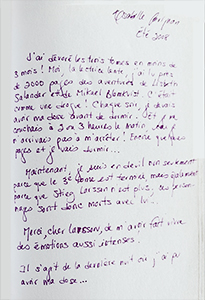 Isabelle
Été 2008
J'ai dévoré les trois tomes en moins de
3 mois ! Moi, la lectrice lente, j'ai lu plus
de 2000 pages des aventures de Lisbeth
Salander et de Mikael Blomkvist. C'était
comme une drogue ! Chaque soir, je devais
avoir ma dose avant de dormir. Et je me
couchais à 2 ou 3 heures le matin, car je
n'arrivais pas à m'arrêter ! Encore quelques
pages et je vais dormir...
Maintenant, je suis en deuil non seulement
parce que le 3e tome est terminé mais également
parce que Stieg Larsson n'est plus. Ses person-
nages sont donc morts avec lui...
Merci, cher Larsson, de m'avoir fait vivre
des émotions aussi intenses.
Il s'agit de la dernière nuit où j'ai pu
avoir ma dose...